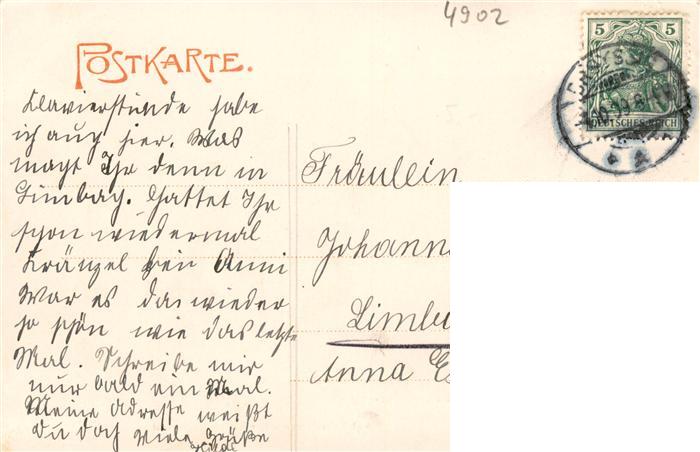 4902
POSTKARTE.
5 5
DEUTSCHES REICH
Klavierstunde habe
ich auch hier. Was
macht Ihr denn in
Limbach. Hattet Ihr
schon wiedermal
Kränzel bei Anni
War es da wieder
so schön wie das letzte
Mal. Schreibe mir
nur bald ein Mal.
Meine Adresse weißt
du doch Viele Grüße
Fräulein
Johann
Limb
Anna E